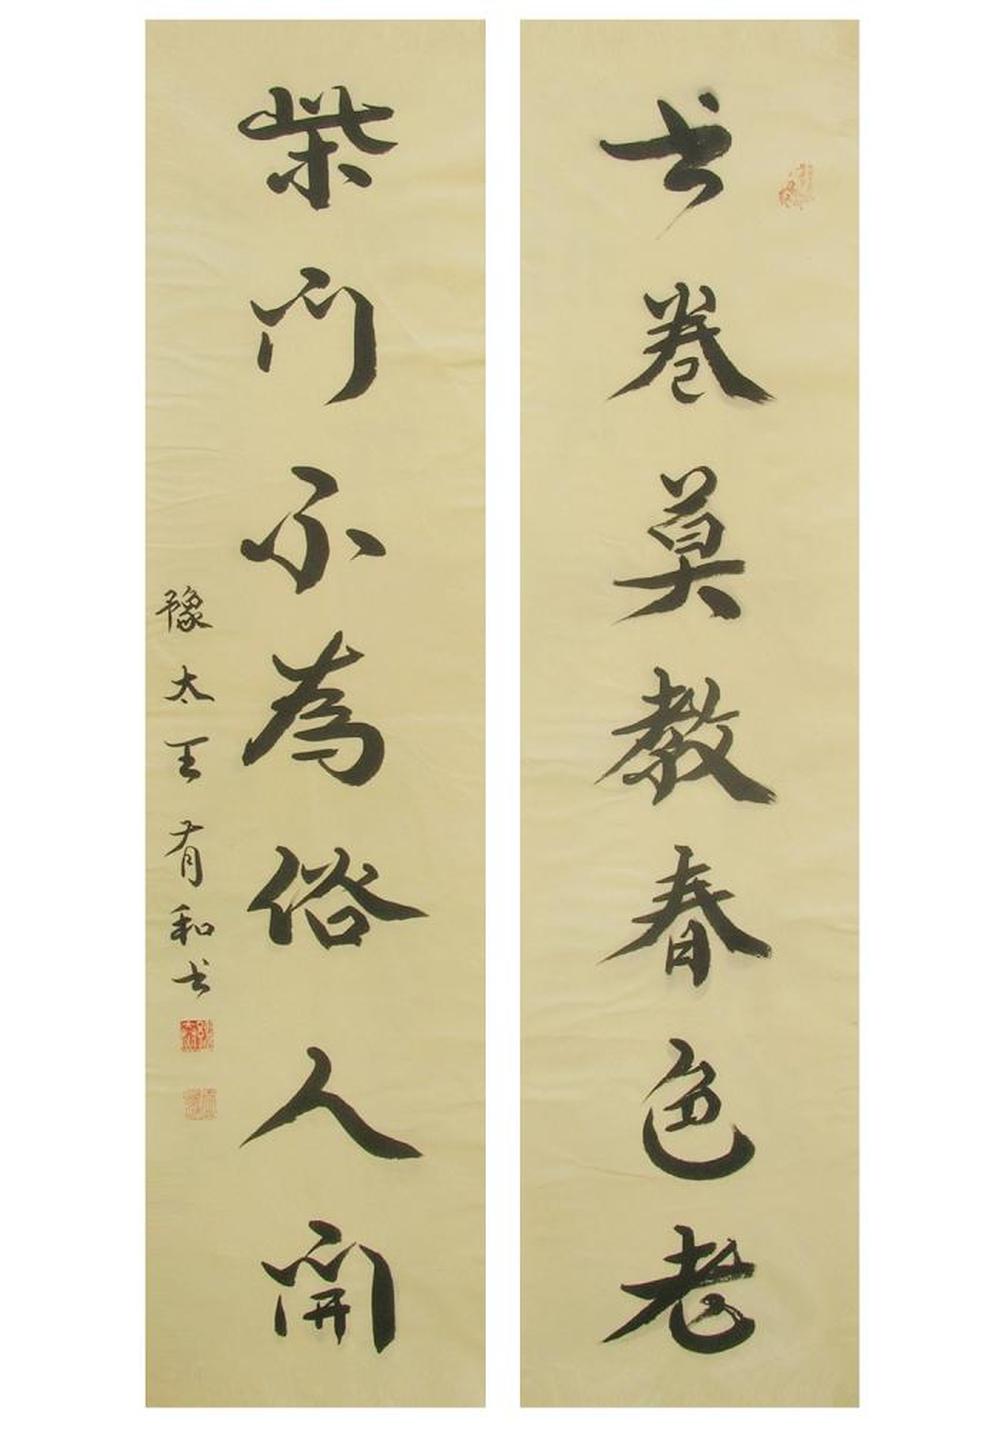 书卷莫教春色老
柴門不為俗人開
豫太王有和书